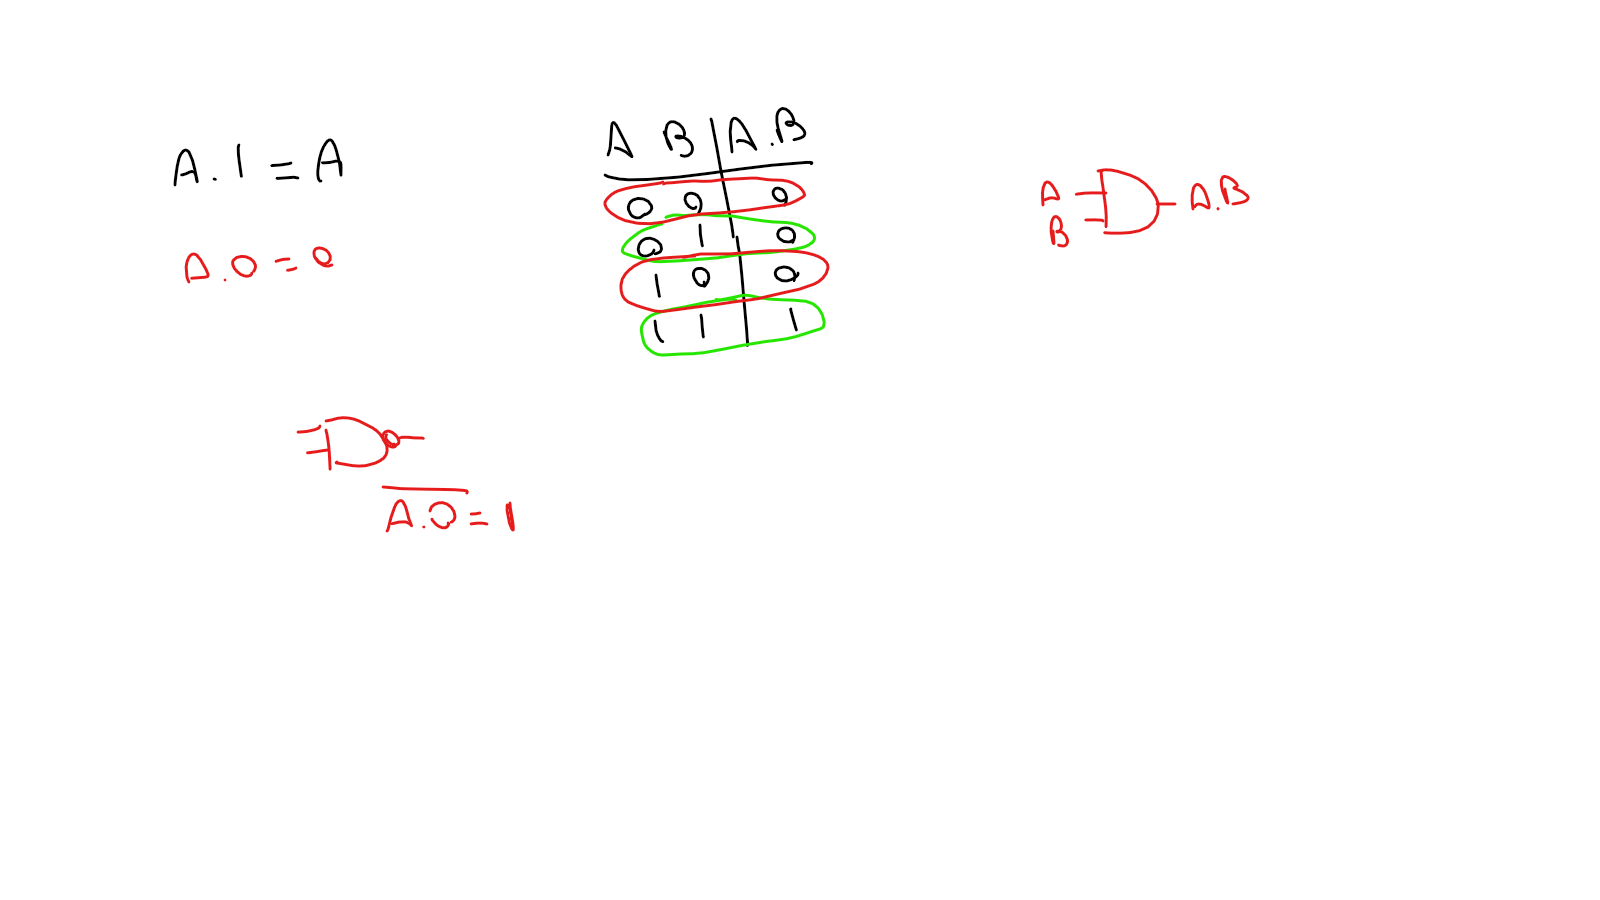 A.1 = A
A.0 = 0
A B A.B
0 0 0
0 1 0
1 0 0
1 1 1
A
B
A.B
A̅.̅0̅ = 1